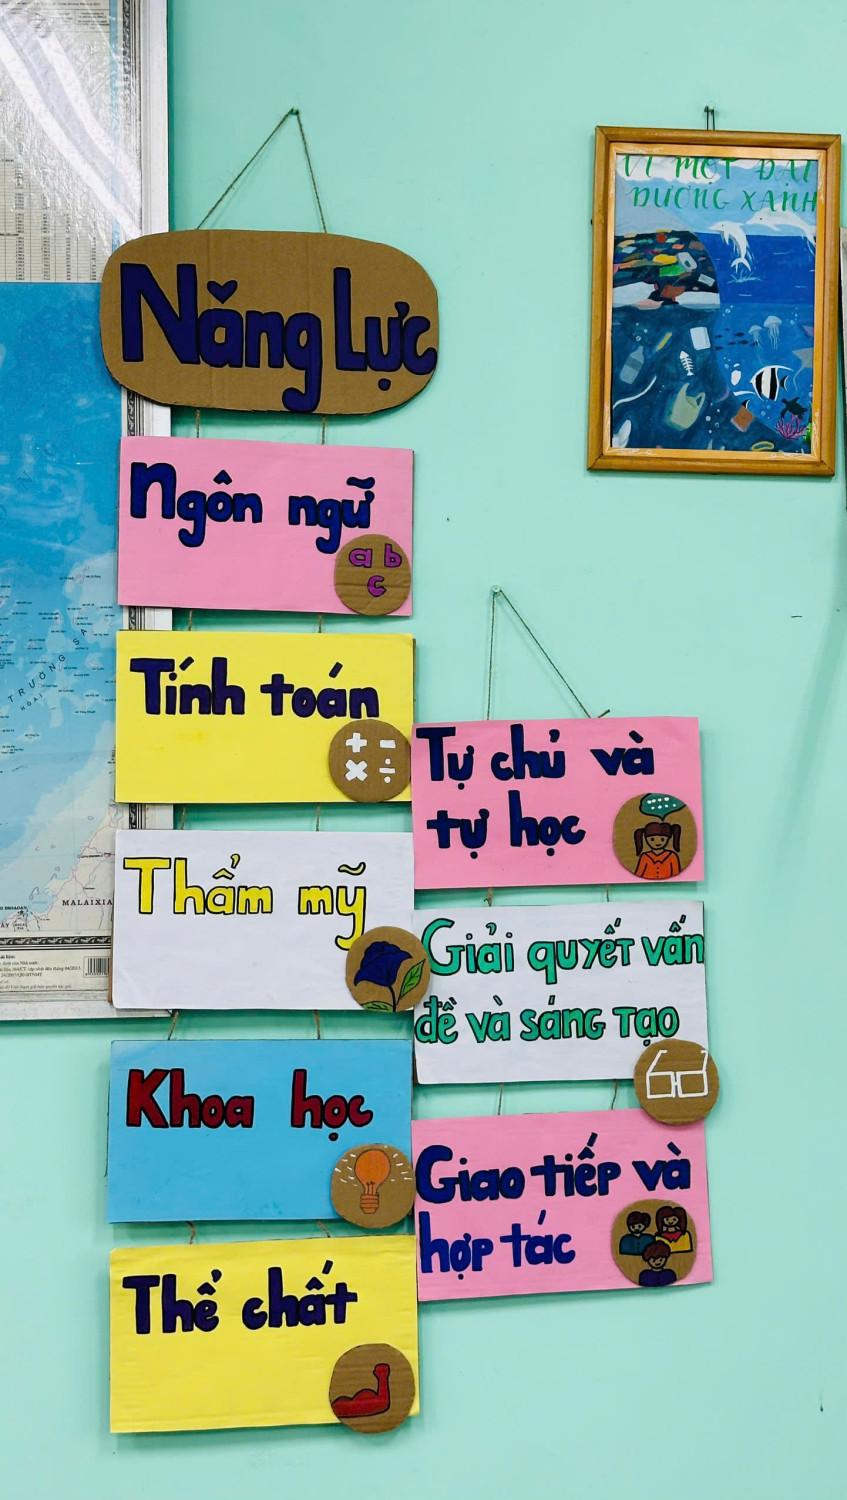 Năng Lực
Ngôn ngữ
a b
c
Tính toán
Thẩm mỹ
Khoa học
Thể chất
Tự chủ và
tự học
Giải quyết vấn
đề và sáng tạo
Giao tiếp và
hợp tác
VÌ MỘT ĐẠI
DƯƠNG XANH
TRƯỜNG SA
MALAIXIA